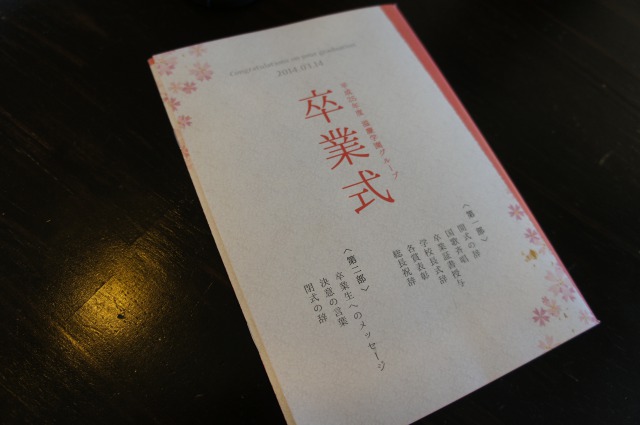 Congratulations on your graduation
2014.03.14
卒業式
〈第一部〉
開式の辞
国歌斉唱
卒業証書授与
学校長式辞
各賞表彰
総長祝辞
〈第二部〉
卒業生へのメッセージ
決意の言葉
閉式の辞